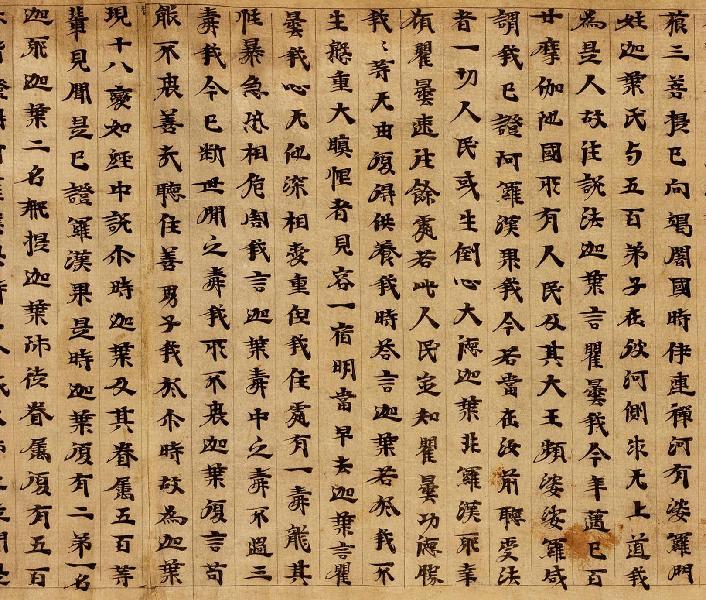 藐三菩提已向竭闍國時伊連禪河有婆羅門
姓迦葉氏与五百弟子在彼河側求无上道我
為是人故往說法迦葉言瞿曇我今年邁已百
廿摩伽陁國所有人民及其大王頻婆娑羅咸
謂我已證阿羅漢果我今若當在汝前聽受法
者一切人民或生倒心大德迦葉非羅漢耶幸
願瞿曇速往餘處若此人民定知瞿曇功德勝
我〻等无由復得供養我時答言迦葉若於我不
生慇重大瞋恨者見容一宿明當早去迦葉言瞿
曇我心无他深相愛重但我住處有一毒龍其
性暴急恐相危害我言迦葉毒中之毒不過三
毒我今已斷世間之毒我所不畏迦葉復言苟
能不畏善哉聽住善男子我於尒時故為迦葉
現十八變如經中說尒時迦葉及其眷屬五百等
輩見聞是已證羅漢果是時迦葉復有二弟一名
迦耶迦葉二名那提迦葉師徒眷屬復有五百